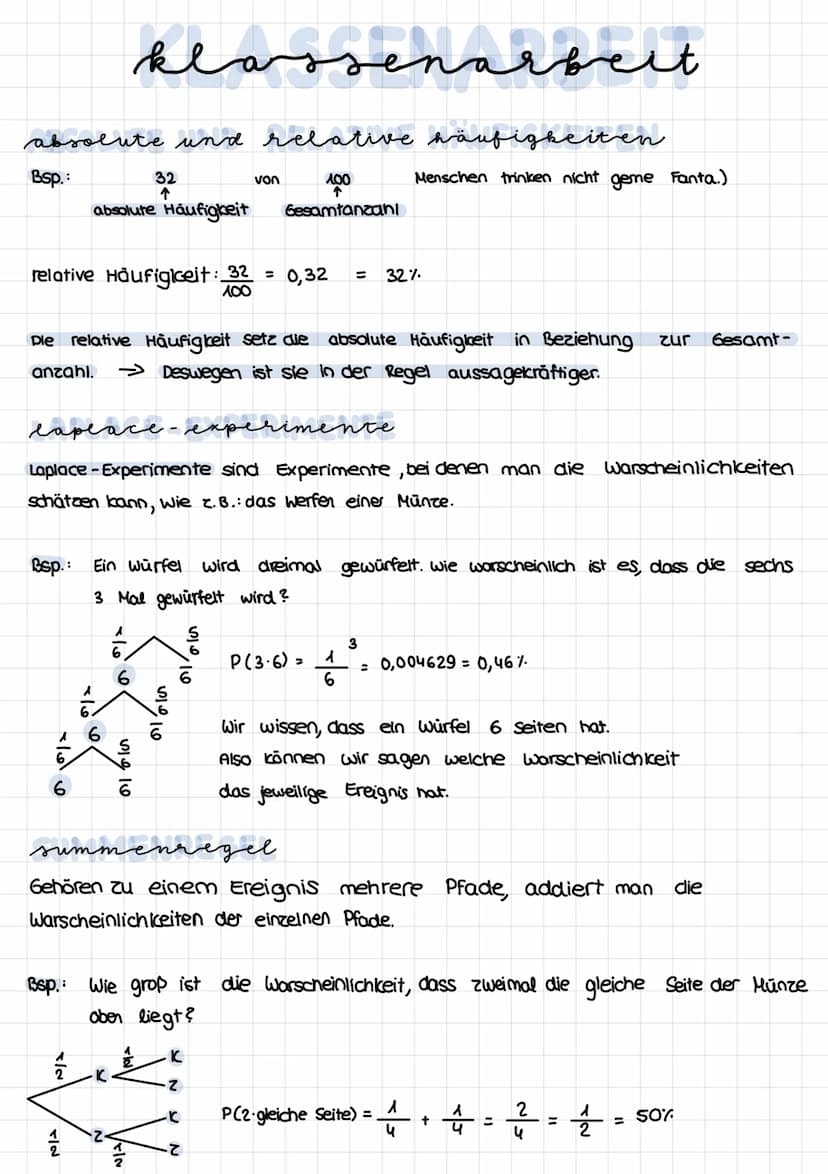 KLASSENARBEIT
klassenarbeit
absolute und relative häufigkeiten
Bsp.: 32 von 100 Menschen trinken nicht gerne Fanta.)
↑ ↑
absolute Häufigkeit Gesamtanzahl
relative Häufigkeit: 32/100 = 0,32 = 32%
Die relative Häufigkeit setz die absolute Häufigkeit in Beziehung zur Gesamt-
anzahl. → Deswegen ist sie in der Regel aussagekräftiger.
laplace-experimente
Laplace-Experimente sind Experimente, bei denen man die Warscheinlichkeiten
schätzen kann, wie z.B.: das Werfen einer Münze.
Bsp.: Ein Würfel wird dreimal gewürfelt. Wie warscheinlich ist es, dass die sechs
3 Mal gewürfelt wird?
1/6 5/6
6 6̅
P(3·6) = 1/6³ = 0,004629 = 0,46%
1/6 5/6
6 6̅
Wir wissen, dass ein Würfel 6 Seiten hat.
1/6 5/6
Also können wir sagen welche Warscheinlichkeit
6 6̅
das jeweilige Ereignis hat.
summenregel
Gehören zu einem Ereignis mehrere Pfade, addiert man die
Warscheinlichkeiten der einzelnen Pfade.
Bsp.: Wie groß ist die Warscheinlichkeit, dass zweimal die gleiche Seite der Münze
oben liegt?
1/2 K 1/2 K
Z
1/2 Z 1/2 K
Z
P(2·gleiche Seite) = 1/4 + 1/4 = 2/4 = 1/2 = 50%